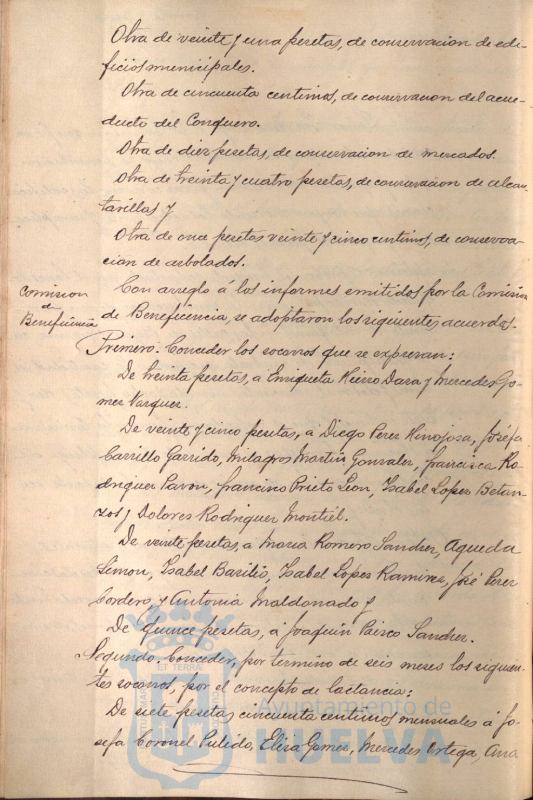 Otra de veinte y una pesetas, de conservacion de edi-
ficios municipales.
Otra de cincuenta centimos, de conservacion del acue-
ducto del Conquero.
Otra de diez pesetas, de conservacion de mercados.
Otra de treinta y cuatro pesetas, de conservacion de alcan-
tarillas y
Otra de once pesetas veinte y cinco centimos, de conserva-
cion de arbolados.
Comision
de
Beneficencia
Con arreglo á los informes emitidos por la Comision
de Beneficencia, se adoptaron los siguientes acuerdos.
Primero. Conceder los socorros que se expresan:
De treinta pesetas, a Enriqueta Hierro Dara y Mercedes Go-
mez Vazquez.
De veinte y cinco pesetas, á Diego Perez Hinojosa, Josefa
Carrillo Garrido, Milagros Martin Gonzalez, Francisca Ro-
driguez Pavon, Francisco Prieto Leon, Isabel Lopez Betan-
zos y Dolores Rodriguez Montiel.
De veinte pesetas, a Maria Romero Sanchez, Agueda
Limon, Isabel Barilio, Isabel Lopez Ramirez, José Perez
Cordero, y Antonia Maldonado y
De quince pesetas, á Joaquin Sanchez.
Segundo. Conceder, por termino de seis meses los siguien-
tes socorros, por el concepto de lactancia:
De siete pesetas cincuenta centimos mensuales á Jo-
sefa Coronel Pulido, Elisa Gomez, Mercedes Ortega, Ana
Ayuntamiento de
HUELVA